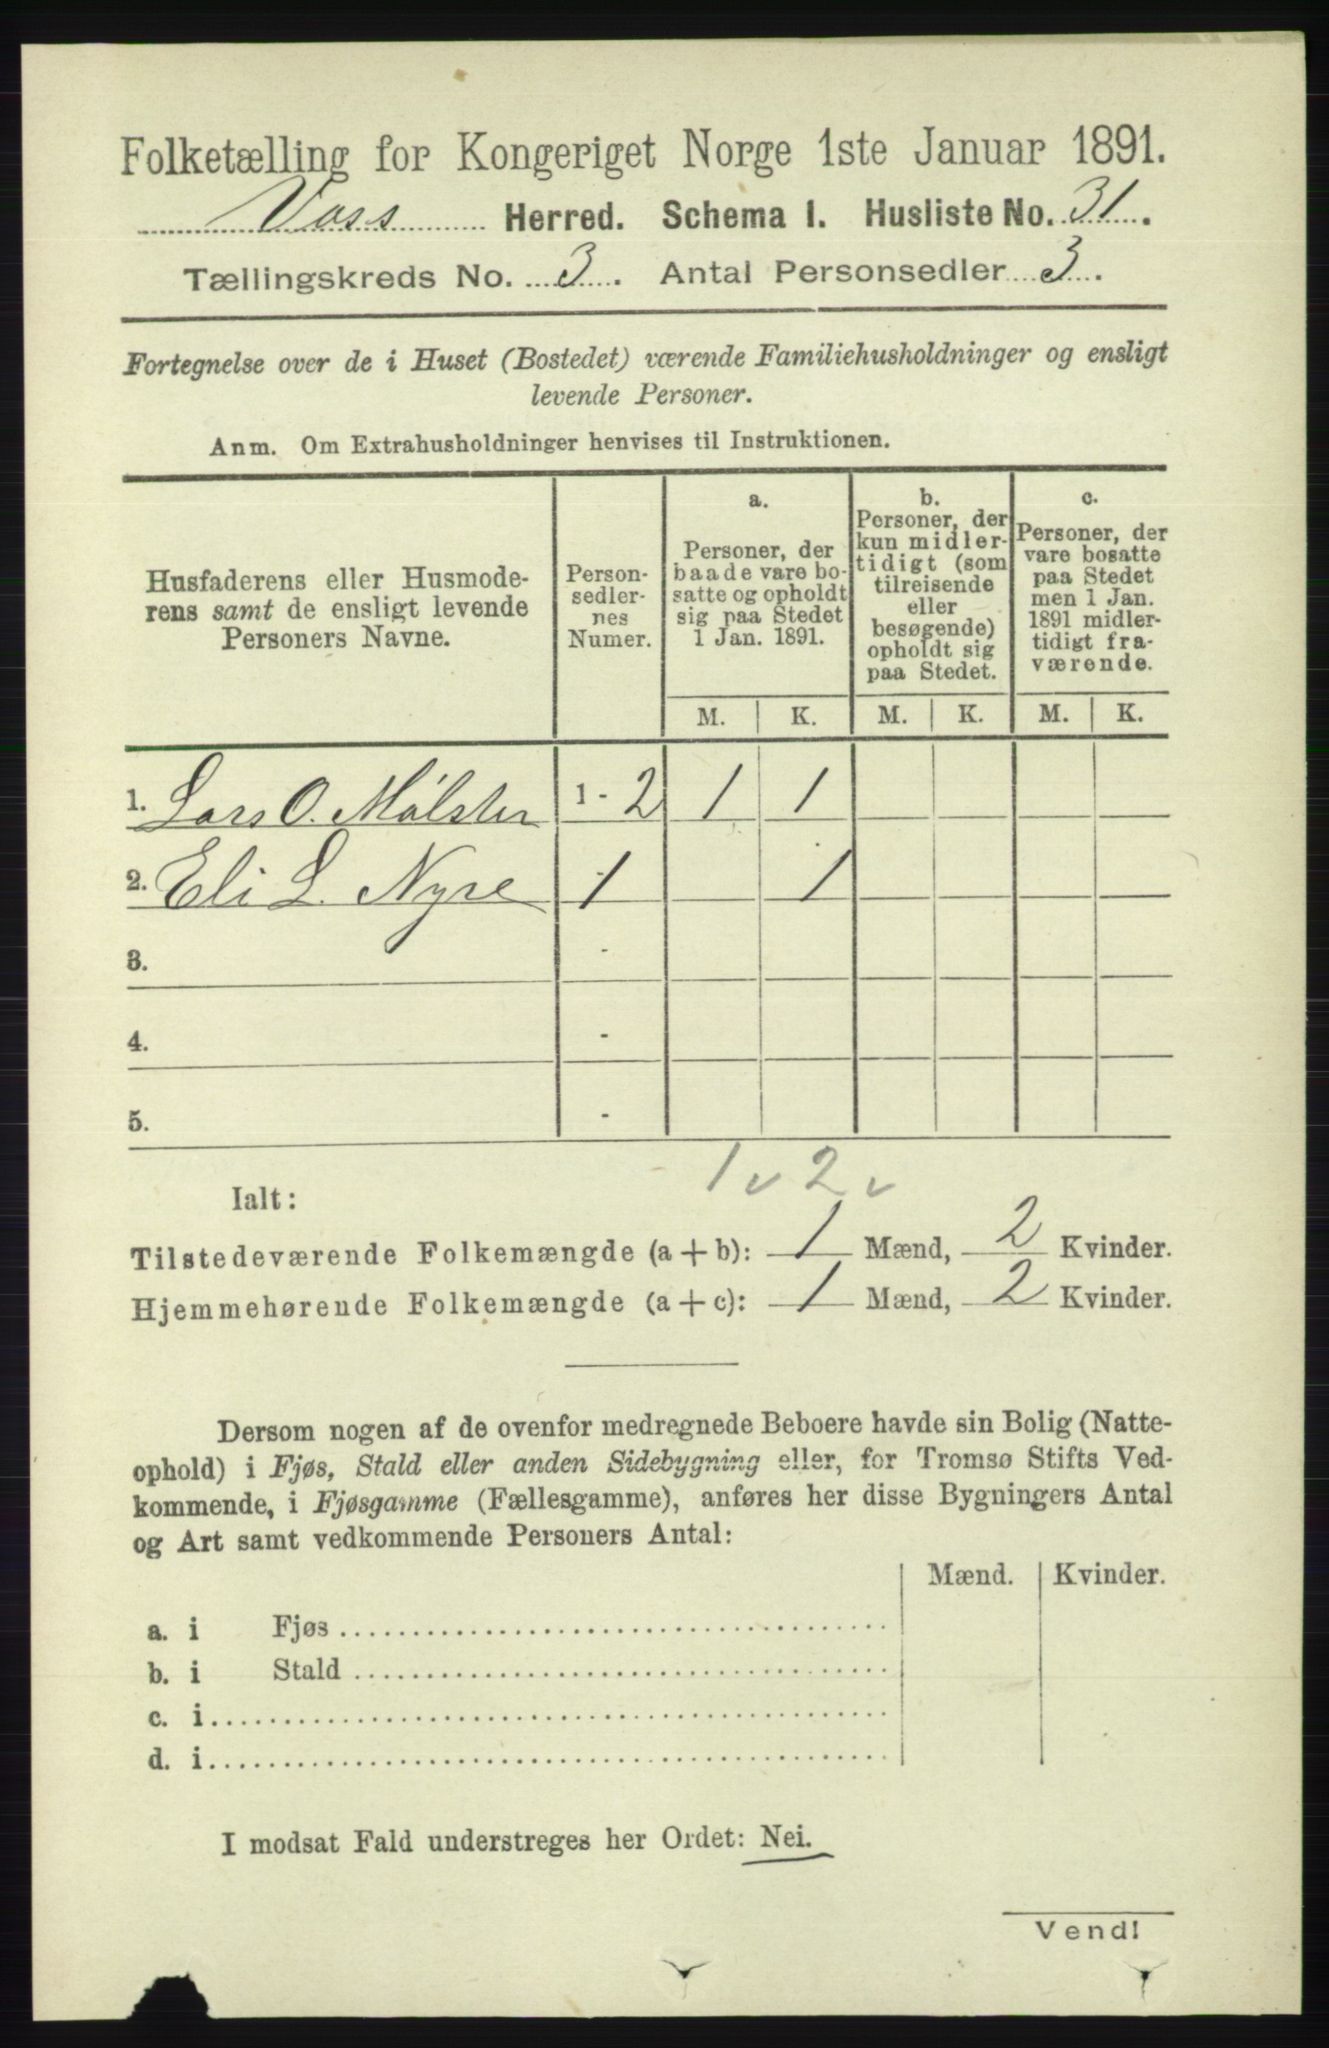 Folketælling for Kongeriget Norge 1ste Januar 1891.
Voss Herred. Schema I. Husliste No. 31.
Tællingskreds No. 3. Antal Personsedler 3.
Fortegnelse over de i Huset (Bostedet) værende Familiehusholdninger og ensligt
levende Personer.
Anm. Om Extrahusholdninger henvises til Instruktionen.
Husfaderens eller Husmode-
rens samt de ensligt levende
Personers Navne.
Person-
sedler-
nes
Numer.
a.
Personer, der
baade vare bo-
satte og opholdt
sig paa Stedet
1 Jan. 1891.
b.
Personer, der
kun midler-
tidigt (som
tilreisende
eller
besøgende)
opholdt sig
paa Stedet.
c.
Personer, der
vare bosatte
paa Stedet
men 1 Jan.
1891 midler-
tidigt fra-
værende.
M. K. M. K. M. K.
1. Lars O. Mølster 1 - 2 1 1
2. Eli L. Nyre 1 1
3. -
4. -
5. -
1 v 2 v
Ialt:
Tilstedeværende Folkemængde (a + b): 1 Mænd, 2 Kvinder.
Hjemmehørende Folkemængde (a + c): 1 Mænd, 2 Kvinder.
Dersom nogen af de ovenfor medregnede Beboere havde sin Bolig (Natte-
ophold) i Fjøs, Stald eller anden Sidebygning eller, for Tromsø Stifts Ved-
kommende, i Fjøsgamme (Fællesgamme), anføres her disse Bygningers Antal
og Art samt vedkommende Personers Antal:
Mænd. Kvinder.
a. i Fjøs
b. i Stald
c. i
d. i
I modsat Fald understreges her Ordet: Nei.
Vend!